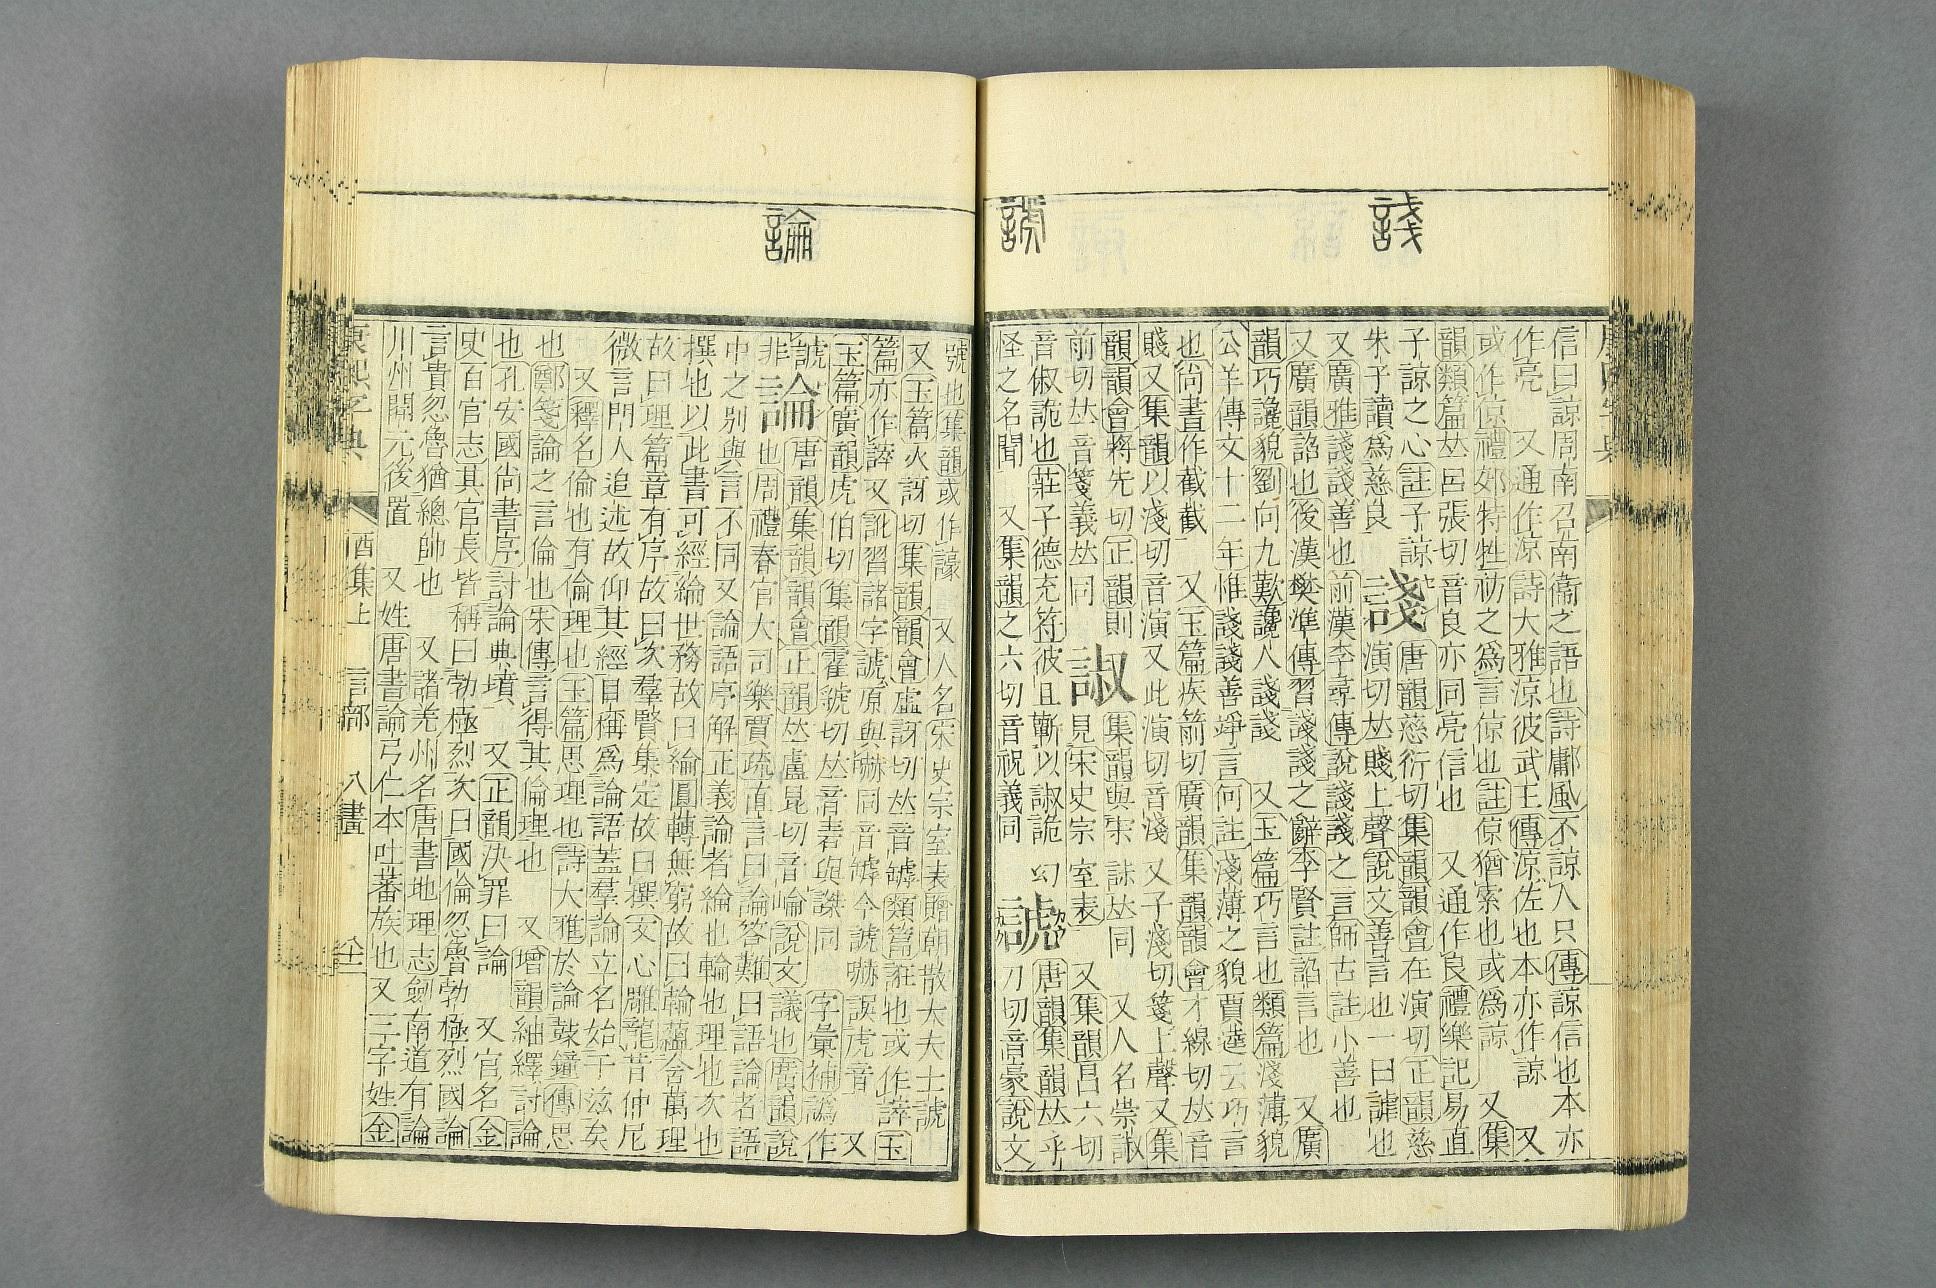 諓
諕
信曰諒周南召南衞之語也詩鄘風不諒人只傳諒信也本亦
作亮　又通作涼詩大雅涼彼武王傳涼佐也本亦作諒　又
或作倞禮郊特牲祊之爲言倞也註倞猶索也或爲諒　又集
韻類篇𠀤呂張切音良亦同亮信也　又通作良禮樂記易直
子諒之心註子諒
朱子讀爲慈良
諓
唐韻慈衍切集韻韻會在演切正韻慈
演切𠀤賤上聲說文善言也一曰謔也
又廣雅諓諓善也前漢李尋傳說諓諓之言師古註小善也
又廣韻諂也後漢樊準傳習諓諓之辭李賢註諂言也　又廣
韻巧讒貌劉向九歎讒人諓諓　又玉篇巧言也類篇淺薄貌
公羊傳文十二年惟諓諓善竫言何註淺薄之貌賈逵云巧言
也尙書作截截　又玉篇疾箭切廣韻集韻韻會才線切𠀤音
賤又集韻以淺切音演又此演切音淺　又子淺切箋上聲又集
韻韻會將先切正韻則
前切𠀤音箋義𠀤同
諔
集韻與宋𧧼𠀤同　又人名崇諔
見宋史宗室表　又集韻昌六切
音俶詭也莊子德充符彼且蘄以諔詭幻
怪之名聞　又集韻之六切音祝義同
諕
唐韻集韻𠀤乎
刀切音豪說文
論
號也集韻或作諕　又人名宋史宗室表贈朝散大夫士諕
又玉篇火訝切集韻韻會虛訝切𠀤音罅類篇誑也或作謼玉
篇亦作謼又訛習諸字諕原與嚇同音罅今諕嚇誤虎音　又
玉篇廣韻虎伯切集韻霍虢切𠀤音砉與謋同　字彙補譌作
諕
非
論
唐韻集韻韻會正韻𠀤盧昆切音崘說文議也廣韻說
也周禮春官大司樂賈疏直言曰論答難曰語論者語
中之別與言不同又論語序解正義論者綸也輪也理也次也
撰也以此書可經綸世務故曰綸圓轉無窮故曰輪蘊含萬理
故曰理篇章有序故曰次羣賢集定故曰撰文心雕龍昔仲尼
微言門人追述故仰其經目稱爲論語蓋羣論立名始于兹矣
又釋名倫也有倫理也玉篇思理也詩大雅於論鼓鐘傳思
也鄭箋論之言倫也朱傳言得其倫理也　又增韻紬繹討論
也孔安國尚書序討論典墳　又正韻決罪曰論　又官名金
史百官志其官長皆稱曰勃極烈次曰國倫忽魯勃極烈國論
言貴忽魯猶總帥也　又諸羌州名唐書地理志劍南道有論
川州開元後置　又姓唐書論弓仁本吐蕃族也又三字姓金
康熙字典
酉集上　言部　八畫